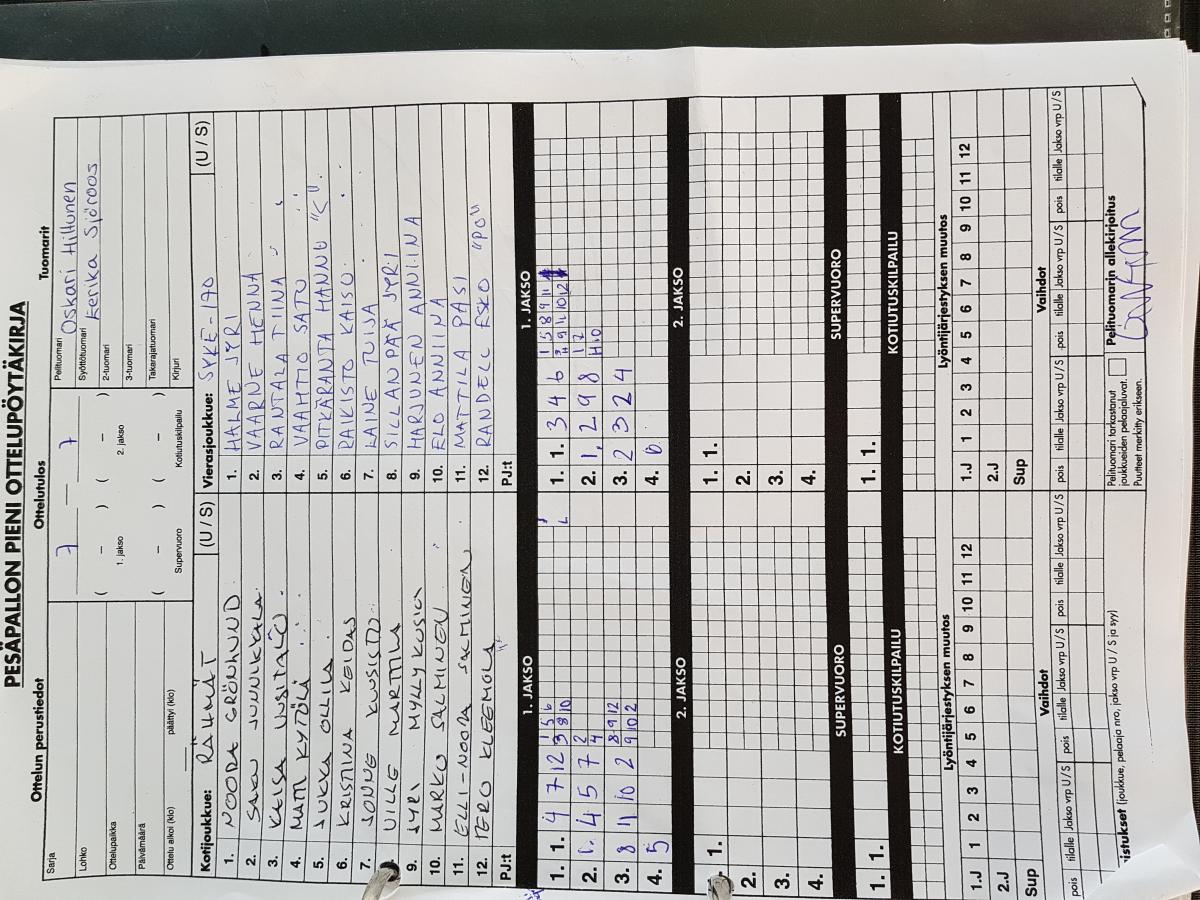 PESÄPALLON PIENI OTTELUPÖYTÄKIRJA
Ottelun perustiedot
Ottelutulos
Tuomarit
Sarja
Lohko
Ottelupaikka
Päivämäärä
Ottelu alkoi (klo) päättyi (klo)
7 — 7
( – ) ( – )
1. jakso 2. jakso
( – ) ( – )
Supervuoro Kotiutuskilpailu
Pelituomari Oskari Hiltunen
Syöttötuomari Eerika Sjöroos
2-tuomari
3-tuomari
Takarajatuomari
Kirjuri
Kotijoukkue: RÄHMÄT (U / S)
1. NOORA GRÖNHUUD
2. SAKU JUNNIKKALA
3. KAISA UUSITALO
4. MATTI KYTÖLÄ
5. JUKKA OLLILA
6. KRISTIINA KEIDAS
7. JONNE KUUSISTO
8. VILLE MARTTILA
9. JYRI MYLLYKOSKI
10. MARKO SALMINEN
11. ELLI-NOORA SALMINEN
12. TERO KLEEMOLA
PJ:t
Vierasjoukkue: SYKE-170 (U / S)
1. HALME JYRI
2. VAARNE HENNA
3. RANTALA TIINA
4. VAAHTIO SATU
5. PITKÄRANTA HANNU "C"
6. RAIKISTO KAISU
7. LAINE TUIJA
8. SILLANPÄÄ JYRI
9. HARJUNEN ANNIINA
10. ELO ANNIINA
11. MATTILA PASI
12. RANDELL ESKO "PO"
PJ:t
1. JAKSO
1. 1. 4 7 12 3
2. 1. 4 5 7
3. 8 11 10 2
4. 5
2. JAKSO
1. 1.
2.
3.
4.
SUPERVUORO
1. 1.
KOTIUTUSKILPAILU
1. JAKSO
1. 1. 3 4 6
2. 1, 2 9 8
3. 2 3 2 4
4. 6
2. JAKSO
1. 1.
2.
3.
4.
SUPERVUORO
1. 1.
KOTIUTUSKILPAILU
Lyöntijärjestyksen muutos
1.J 1 2 3 4 5 6 7 8 9 10 11 12
2.J
Sup
Vaihdot
pois tilalle Jakso vrp U/S pois tilalle Jakso vrp U/S pois tilalle Jakso vrp U/S
Lyöntijärjestyksen muutos
1.J 1 2 3 4 5 6 7 8 9 10 11 12
2.J
Sup
Vaihdot
pois tilalle Jakso vrp U/S pois tilalle Jakso vrp U/S pois tilalle Jakso vrp U/S
istukset (joukkue, pelaaja nro, jakso vrp U / S ja syy)
Pelituomari tarkastanut
joukkueiden pelaajaluvat.
Puutteet merkitty erikseen.
Pelituomarin allekirjoitus